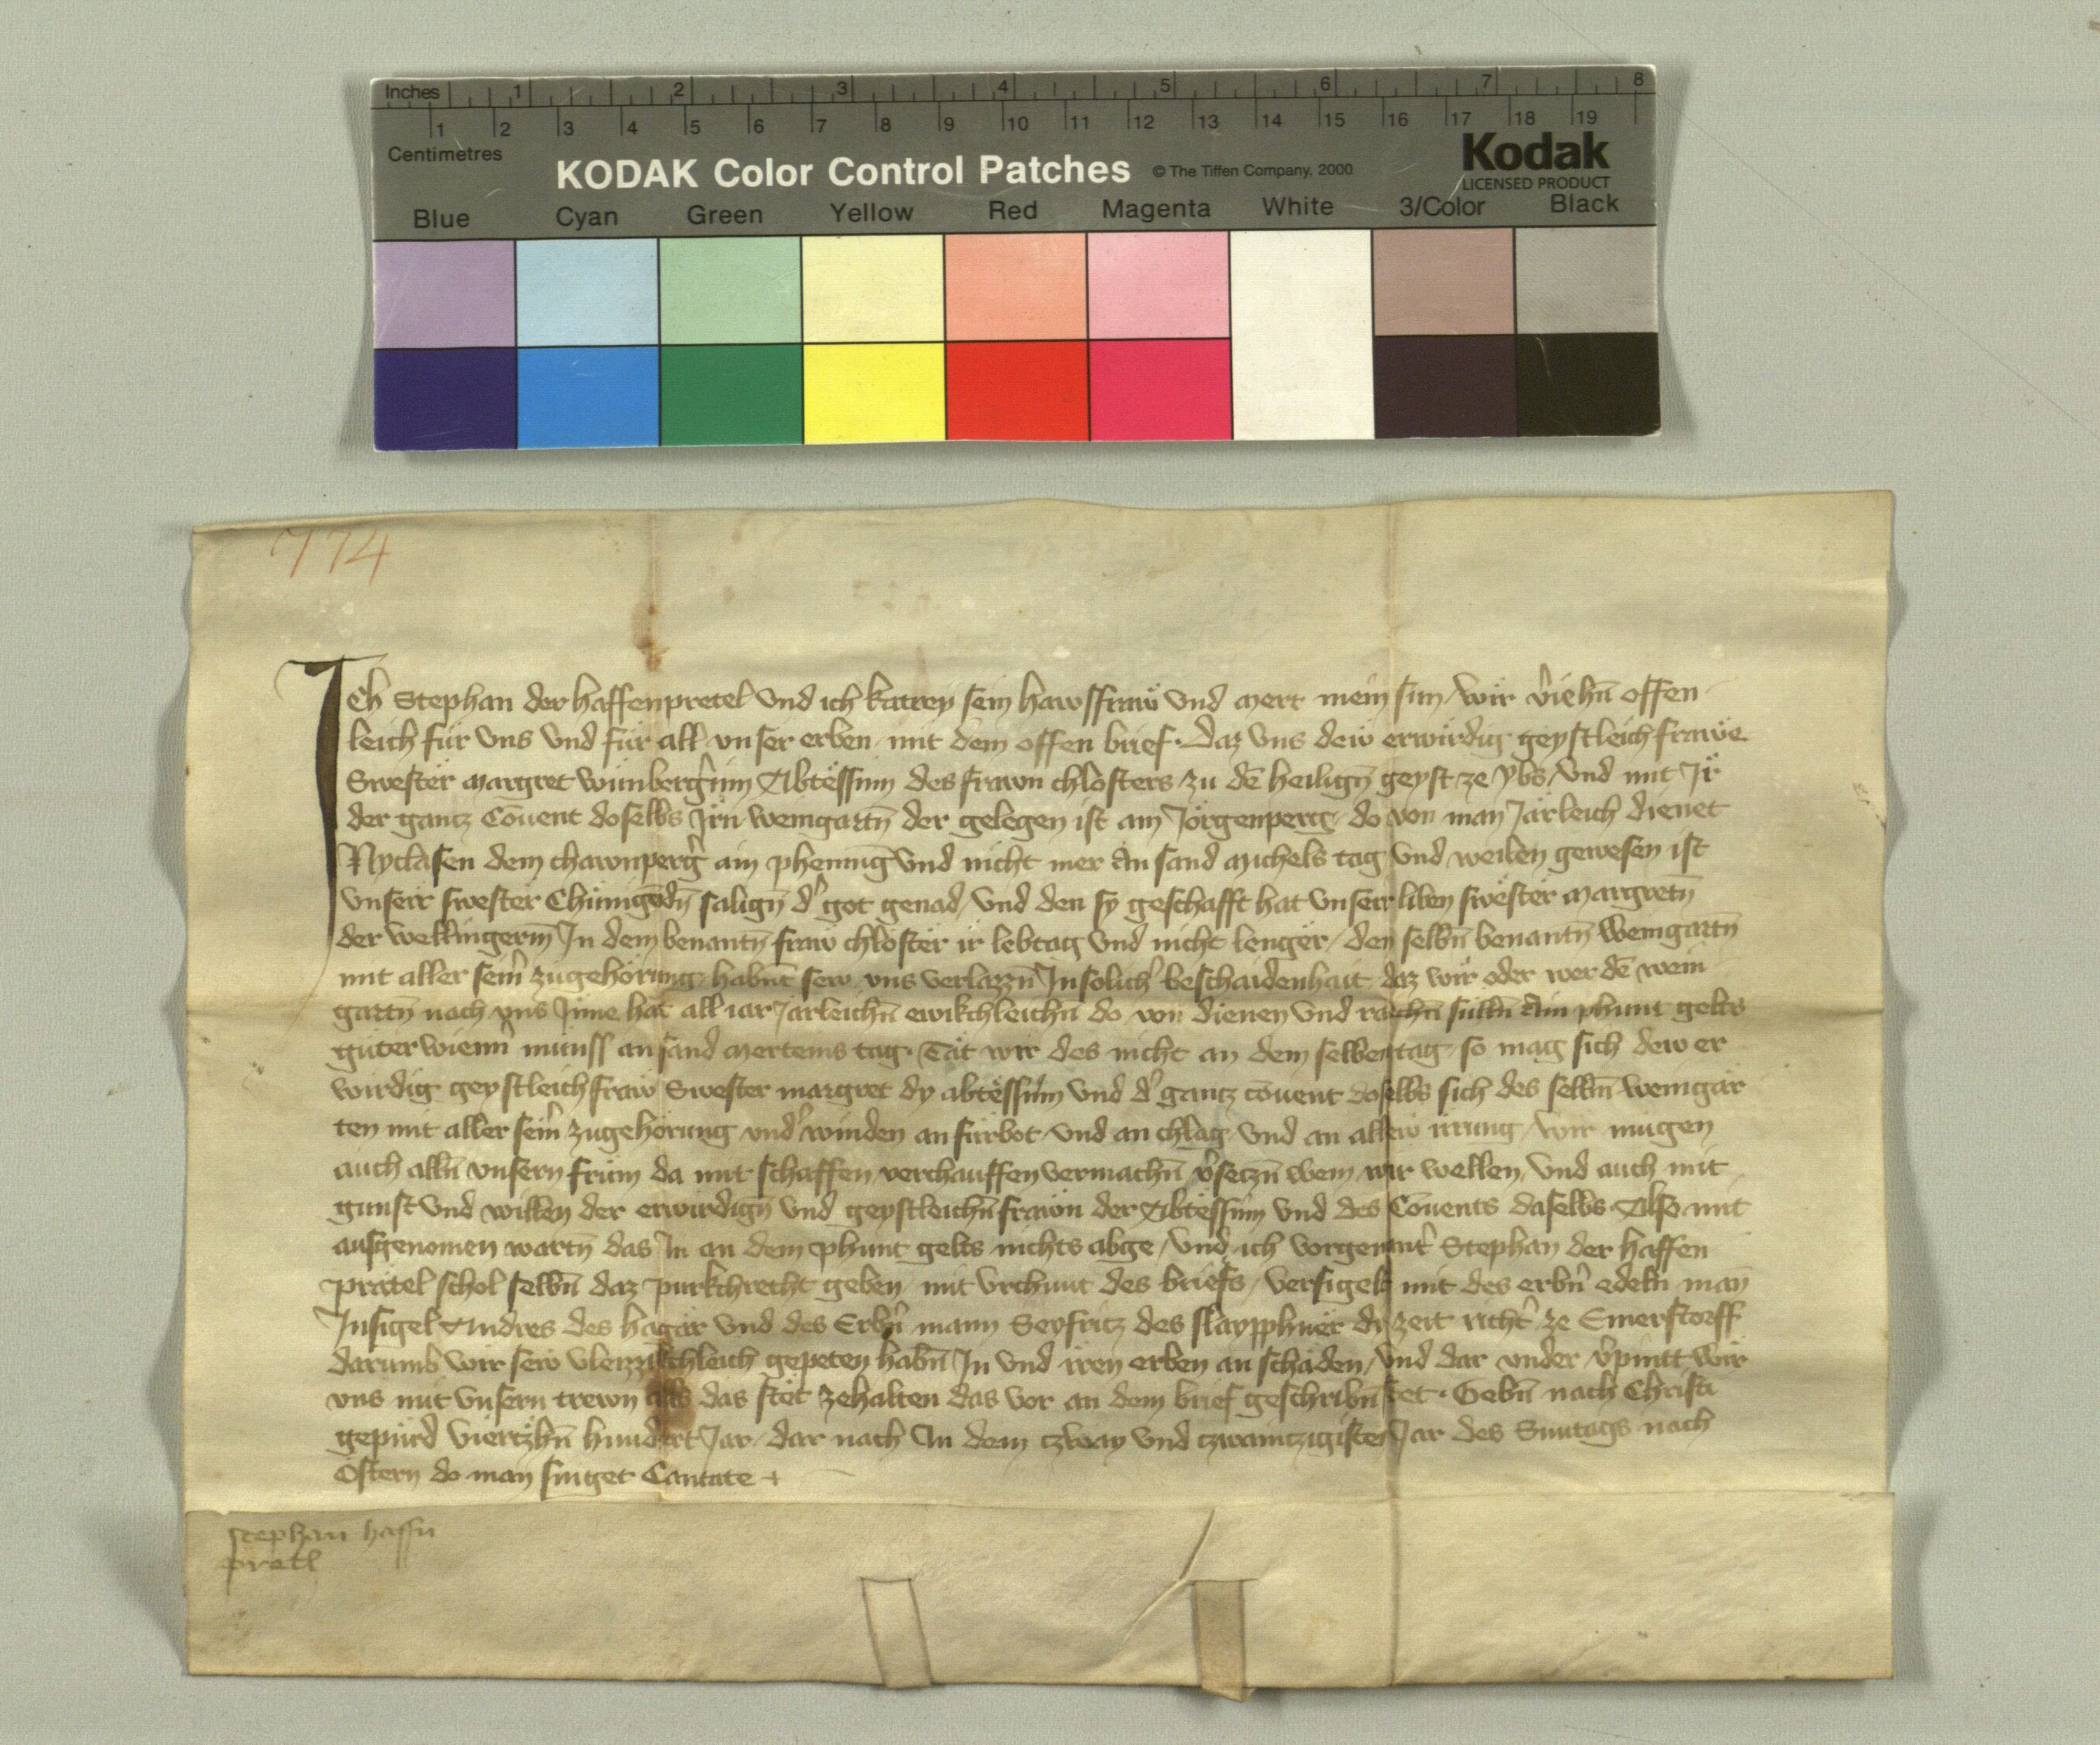 Inches 1 2 3 4 5 6 7 8
1 2 3 4 5 6 7 8 9 10 11 12 13 14 15 16 17 18 19
Centimetres
KODAK Color Control Patches © The Tiffen Company, 2000 Kodak
LICENSED PRODUCT
Blue Cyan Green Yellow Red Magenta White 3/Color Black
774
Ich Stephan der haffenpretel vnd ich katrey sein hawsfraw vnd mert mein sun wir v̾iehn̄ offen
leich für vns vnd für all vnser erben mit dem offen brief. Daz vns dew erwirdig geystleich frawe
Swester margret Abtessinn des frawn chlosters zu dē heilign̄ geyst ze ybs vnd mit Jr
der gantz Cōuent doselbs Jrn weingartn̄ der gelegen ist am Jörgenperg do von man Järleich dienet
Nyclasen dem ain phennig vnd nicht mer an sand michels tag vnd weilen gewesen ist
vnserr swester salign̄ d̾ got genad vnd den sy geschafft hat vnserr liben swester margretn̄
der In dem benantn̄ fraw chloster ir lebtag vnd nicht lenger den selbn̄ benantn̄ Weingartn̄
mit aller sein̾ zugehörung habnt sew vns verlazzn̄ In solich̾ beschaidenhait daz wir oder wer dē wein
gartn̄ nach vns Inne hat all iar Jarleichn̄ ewikchleichn̄ do von dienen vnd sulln̄ Ain phunt gelts
guter wienn̾ munss an sand mertems tag. Tät wir des nicht an dem selben tag so mag sich dew er
wirdig geystleich fraw Swester margret dy abtessinn vnd d̾ gantz cōuent doselbs sich des selbn̄ weingar
ten mit aller sein̾ zugehörung vnd̾winden an fürbot vnd an chlag vnd an allew irrung wir mugen
auch alln̄ vnsern frum da mit schaffen verchauffen vermachn̄ v̾seczn̄ wem wir wellen vnd auch mit
gunst vnd willen der erwirdign̄ vnd geystleichn̄ frawn der Abtessinn vnd des Cōuents daselbs Also mit
ausgenomen wartn̄ das In an dem phunt gelts nichts abge vnd ich vorgenant̾ Stephan der haffen
prätel schol selbn̄ daz purkchrecht geben mit vrchunt des briefs versigelt mit des erbn̾ edeln man
Insigel Andres des hagär vnd des Erbn̾ mann Seyfritz des dy zeit richt̾ ze Emerstorff
darumb wir sew vleizzikchleich gepeten habn̄ In vnd iren erben an schaden vnd dar vnder v̾pintt wir
vns mit vnsern trewn alls das stet zehalten das vor an dem brief geschribn̄ stet. Gebn̄ nach Christi
gepurd Viertzehn̄ hundert Jar dar nach In dem czway vnd czwaintzigisten Jar des Suntags nach
Ostern do man singet Cantate
Stephan haffn
pretl